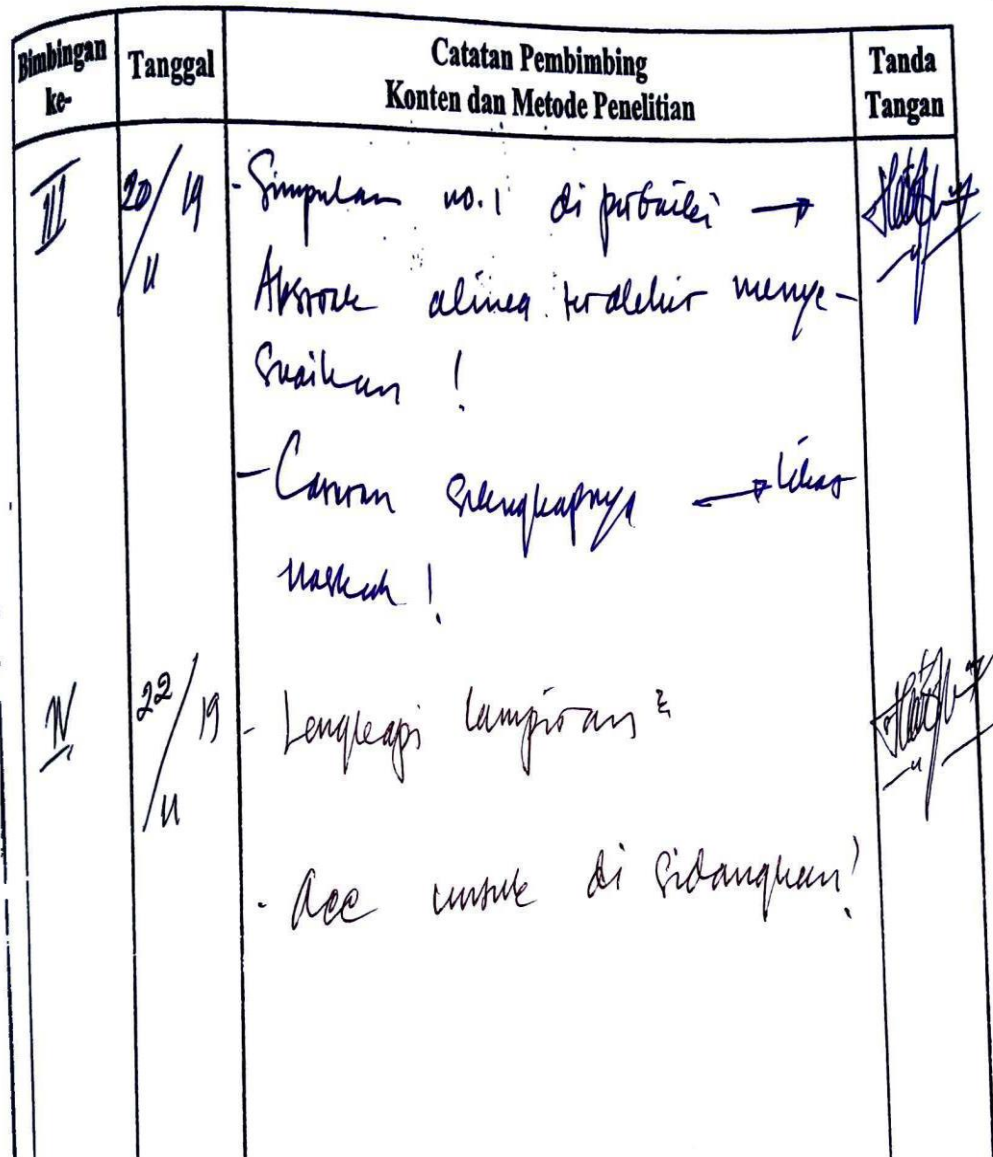 Bimbingan ke-
Tanggal
Catatan Pembimbing
Konten dan Metode Penelitian
Tanda Tangan
III
20/11 19
- Simpulan no.1 di perbaiki →
Abstrak alinea terakhir menye-
suaikan !
- Catatan selengkapnya → lihat
naskah !
IV
22/11 19
- Lengkapi lampiran²
- Acc untuk di sidangkan!